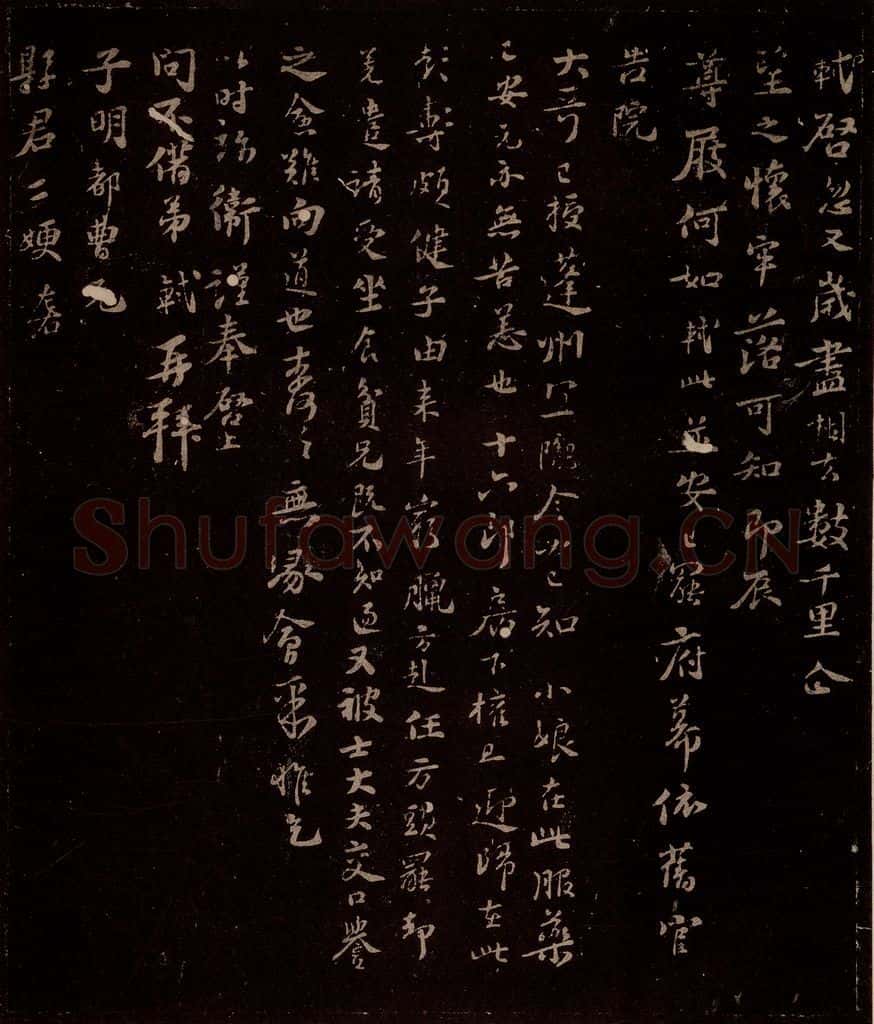 軾啓忽又歲盡相去數千里企
望之懷牢落可知即辰
尊履何如軾此並安已罷府幕依舊官
告院
大哥已授蓬州 闕今必已知 小娘在此服藥
已安元亦無苦恙也 十六郎 下權且迎歸在此
彭壽頗健子由來年 臘方赴任方頭罷却
差遣請受坐食貧兄既不知 又被士大夫交口譽
之 難向道也 無緣會 惟乞
以時珍衛謹奉啓上
問不備弟軾再拜
子明都曹兄
縣君二嫂
Shufawang.CN